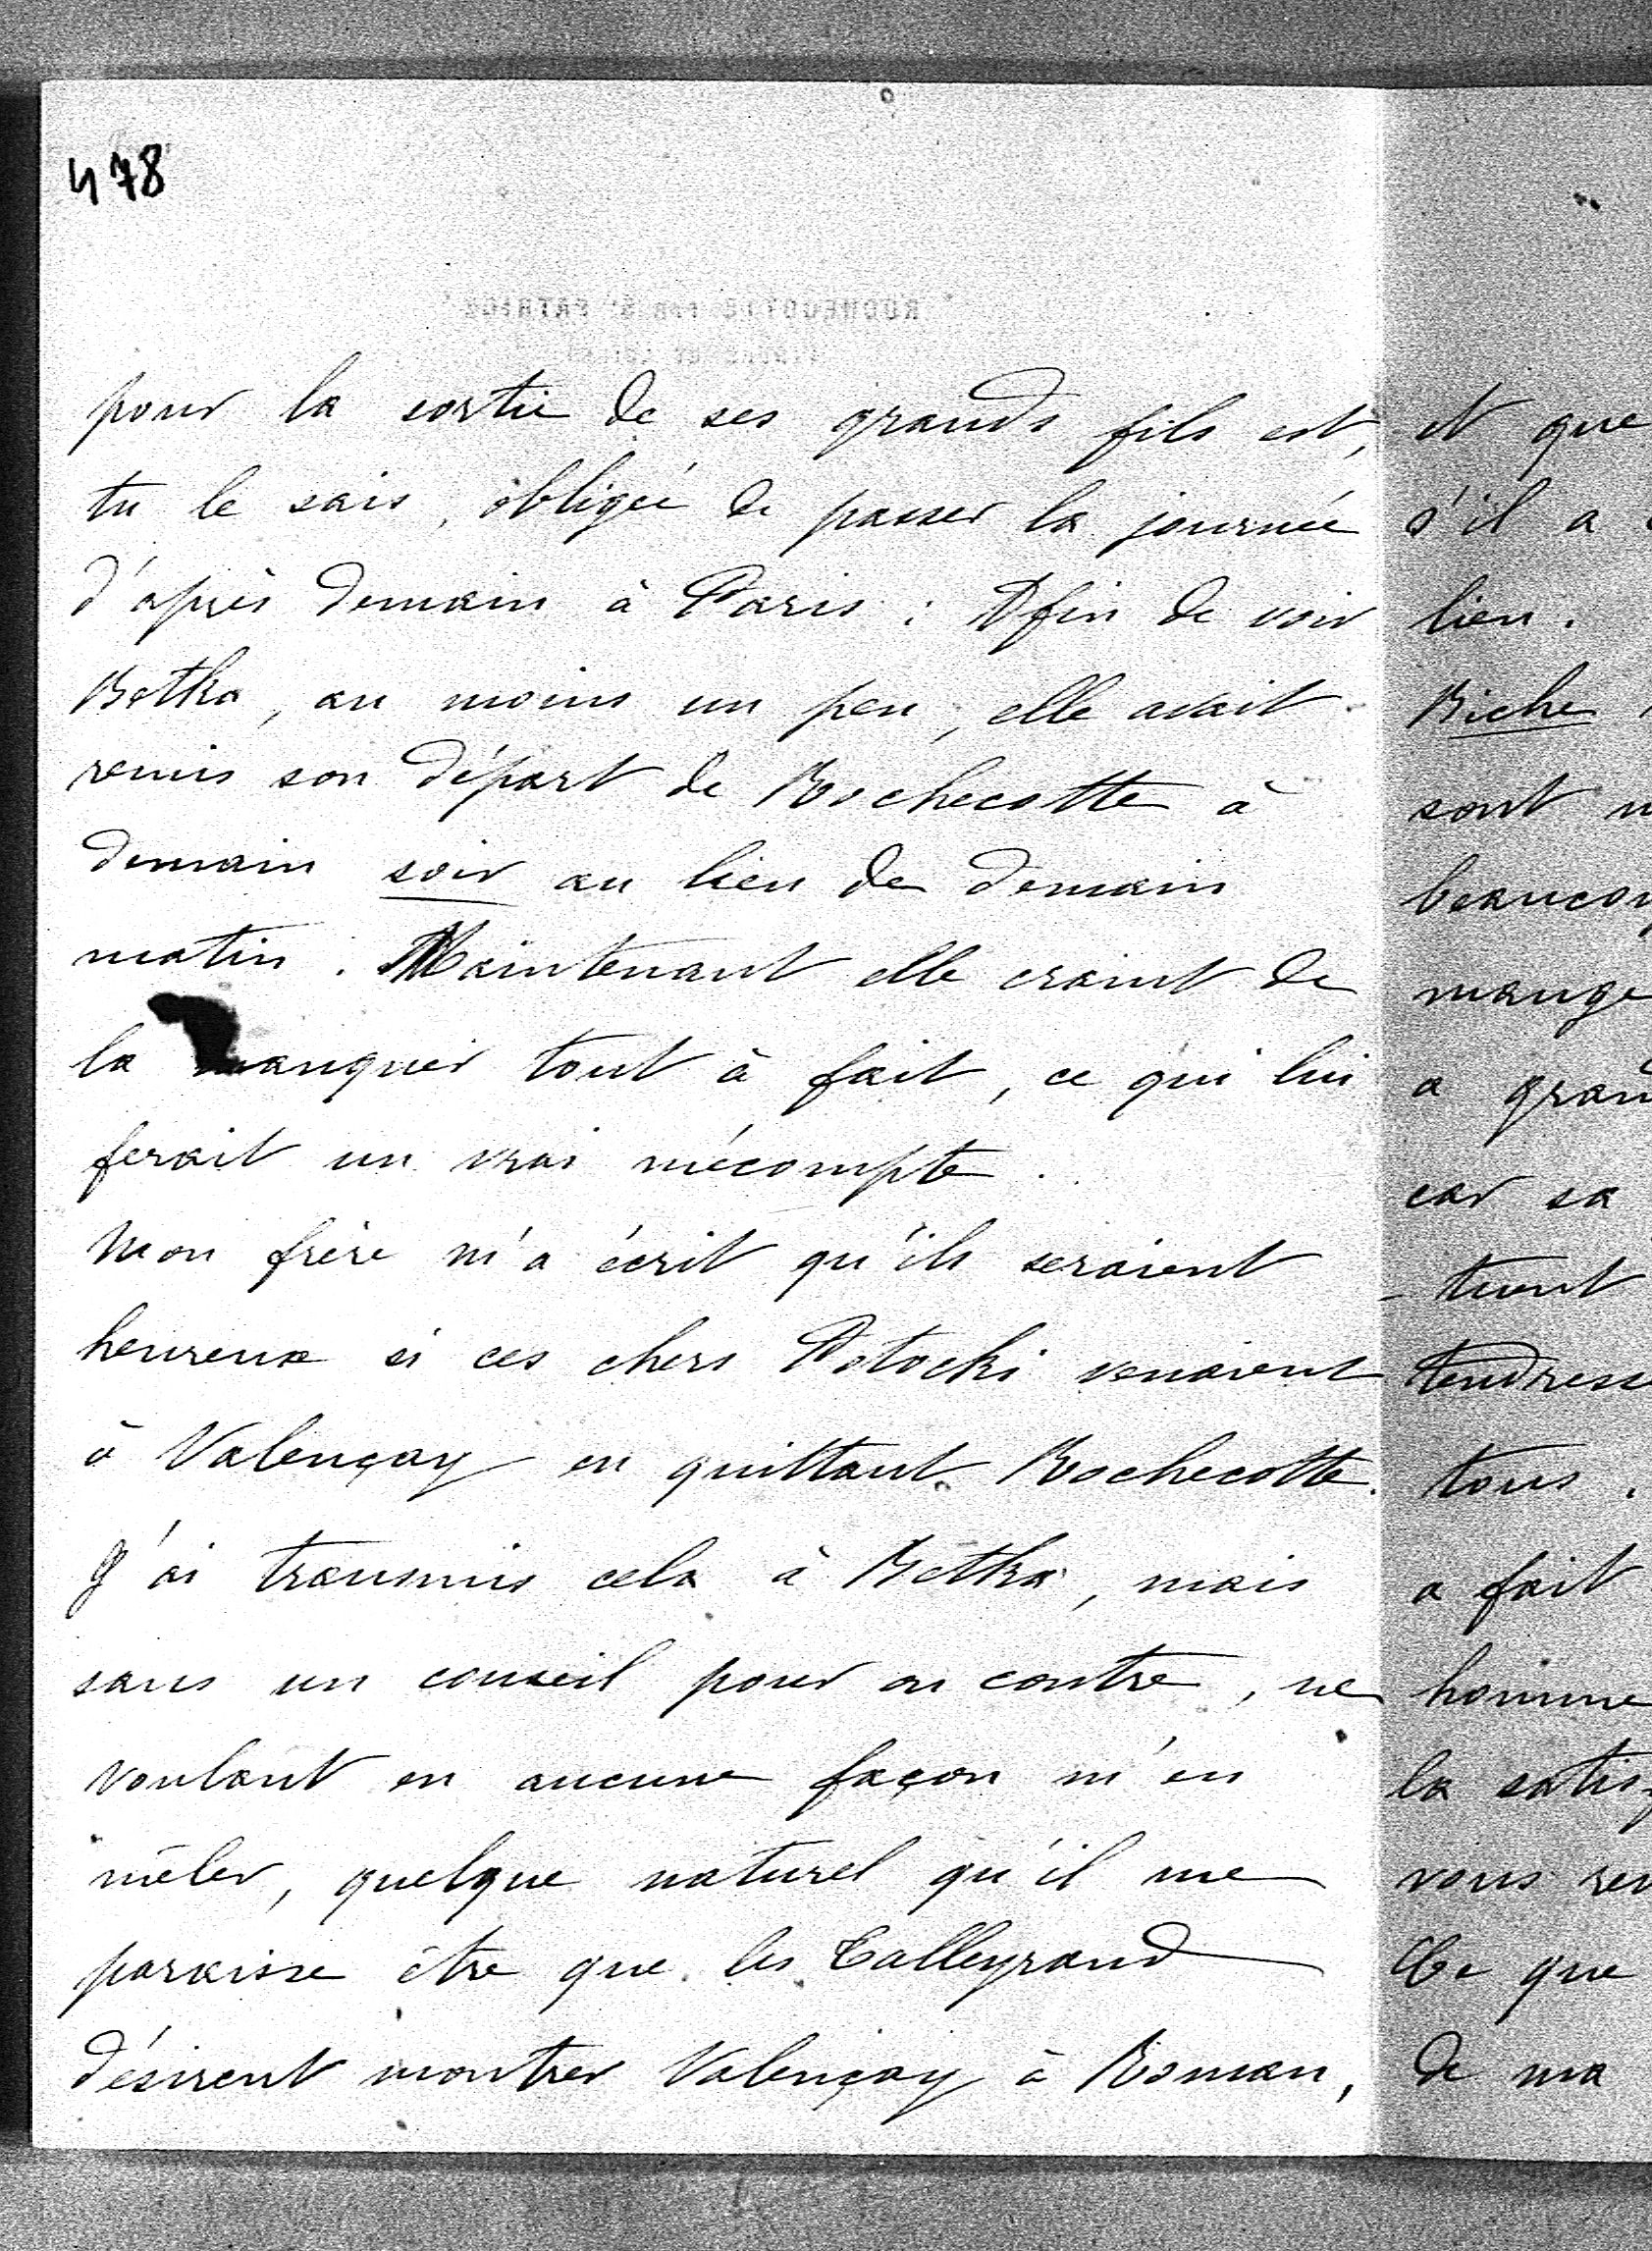 478
pour la sortie de ses grands fils est,
tu le sais, obligée de passer la journée
d'après demain à Paris : Afin de voir
Betka, au moins un peu, elle avait
remis son départ de Rochecotte à
demain soir au lieu de demain
matin. Maintenant elle craint de
la manquer tout à fait, ce qui lui
ferait un vrai mécompte.
Mon frère m'a écrit qu'ils seraient
heureux si ces chers Potocki venaient
à Valençay en quittant Rochecotte.
J'ai transmis cela à Betka, mais
sans un conseil pour ou contre, ne
voulant en aucune façon m'en
mêler, quelque naturel qu'il me
paraisse être que les Talleyrand
désirent montrer Valençay à Roman,
et que
s'il a
lieu.
Biche
sont
beaucou
mange
a gran
car sa
-tuent
tendresse
tous.
a fait
homme
la satis
vous
Ce que
de ma